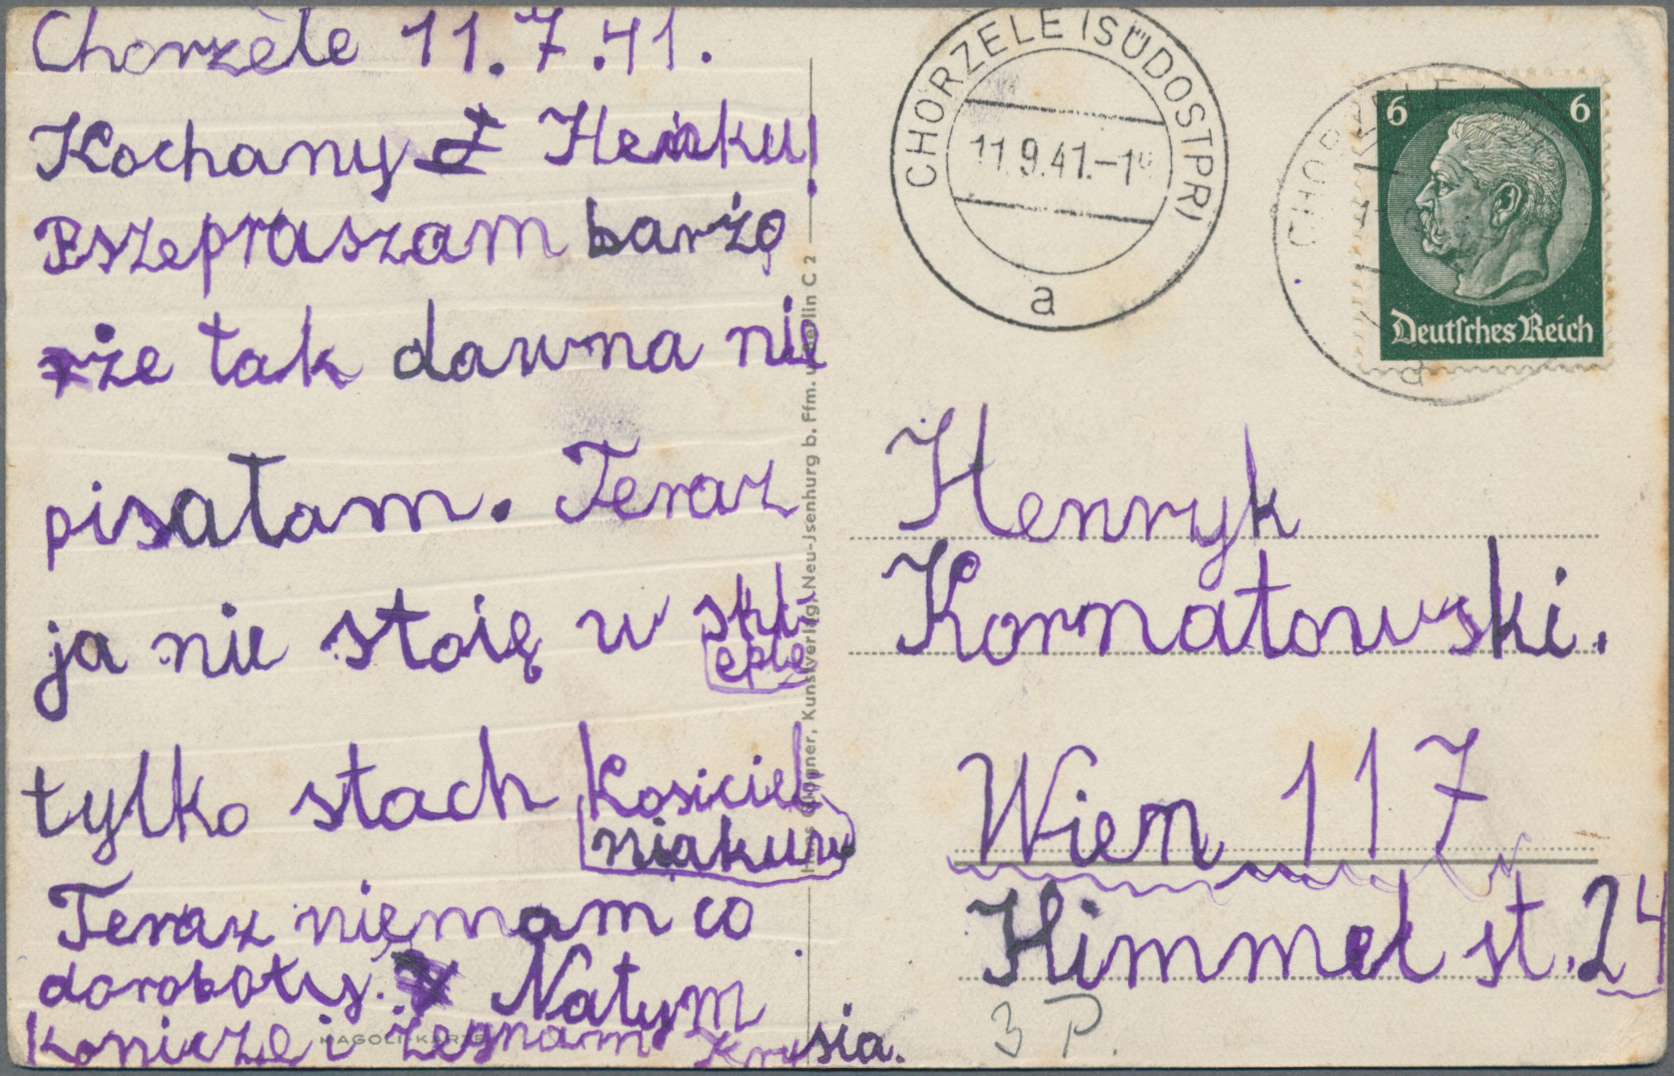 Chorzele 11.7.41.
Kochany Heńku!
Pszepraszam barżo
że tak dawna nie
pisałam. Teraz
ja nie stoię w skl
epie
tylko stach Kosiciel
niakuw
Teraz niemam co
doroboty. Natym
koniczę i żegnam Krysia.
CHORZELE (SÜDOSTPR)
11.9.41.-1
a
6 6
Deutsches Reich
Henryk
Kornatowski.
Wien 117
Himmel st. 24
3 P.
Kunstverlag, Neu-Jsenburg b. Ffm. u. Berlin C 2
HAGOLI-KARTE